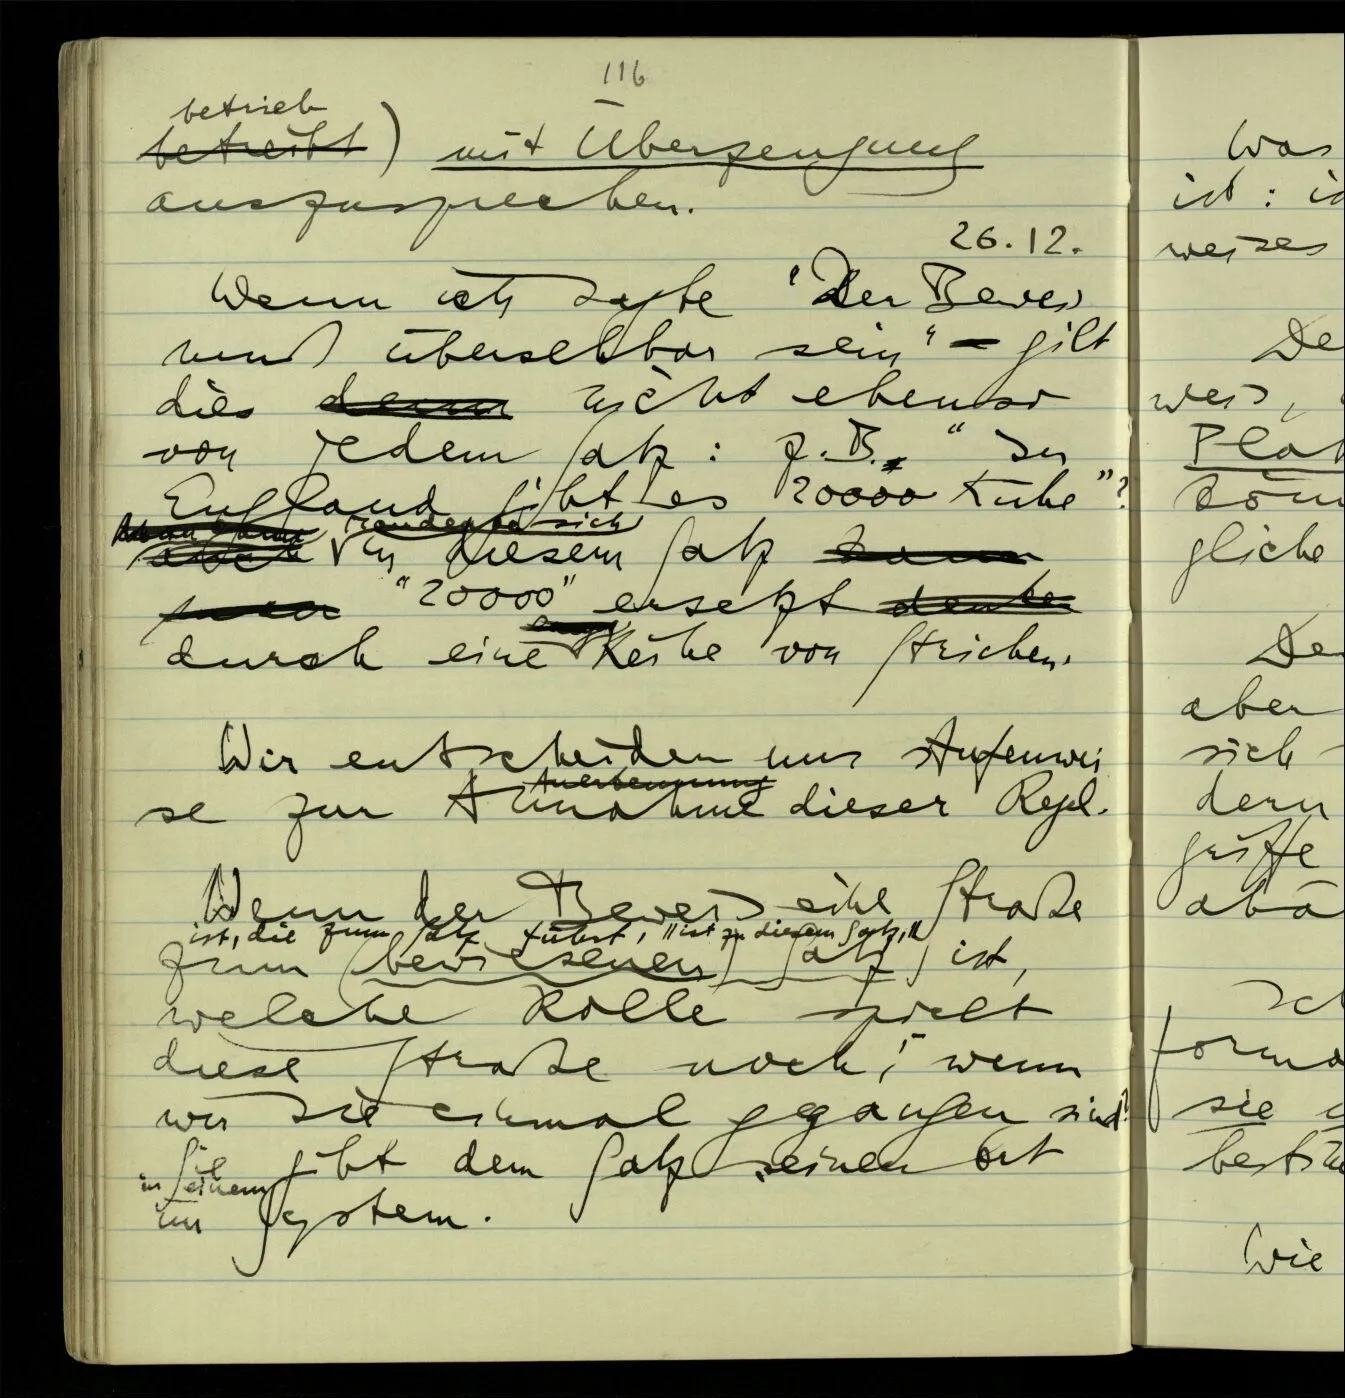 116
betrieb
betreibt) mit Überzeugung
auszusprechen.
26.12.
Wenn ich sagte "Der Beweis
muß übersehbar sein" – gilt
dies denn nicht ebenso
von jedem Satz: z.B. "In
England gibt es 20000 Kühe"?
sich
in diesem Satz
"20000" ersetzt denke
durch eine Reihe von Strichen.
Wir entscheiden uns
Anerkennung
se zur Annahme dieser Regel.
Wenn der Beweis eine Straße
ist, die zum Satz führt, "ist zu diesem Satz,"
zum bewiesenen Satz ist,
welche Rolle spielt
diese Straße noch, wenn
wir sie einmal gegangen sind?
Sie gibt dem Satz seinen Ort
in einem
im System.
Was
ist: i
weises
De
weis,
Plat
könn
gliche
De
aber
sich
dern
griffe
abä
forma
sie
bestim
Wie